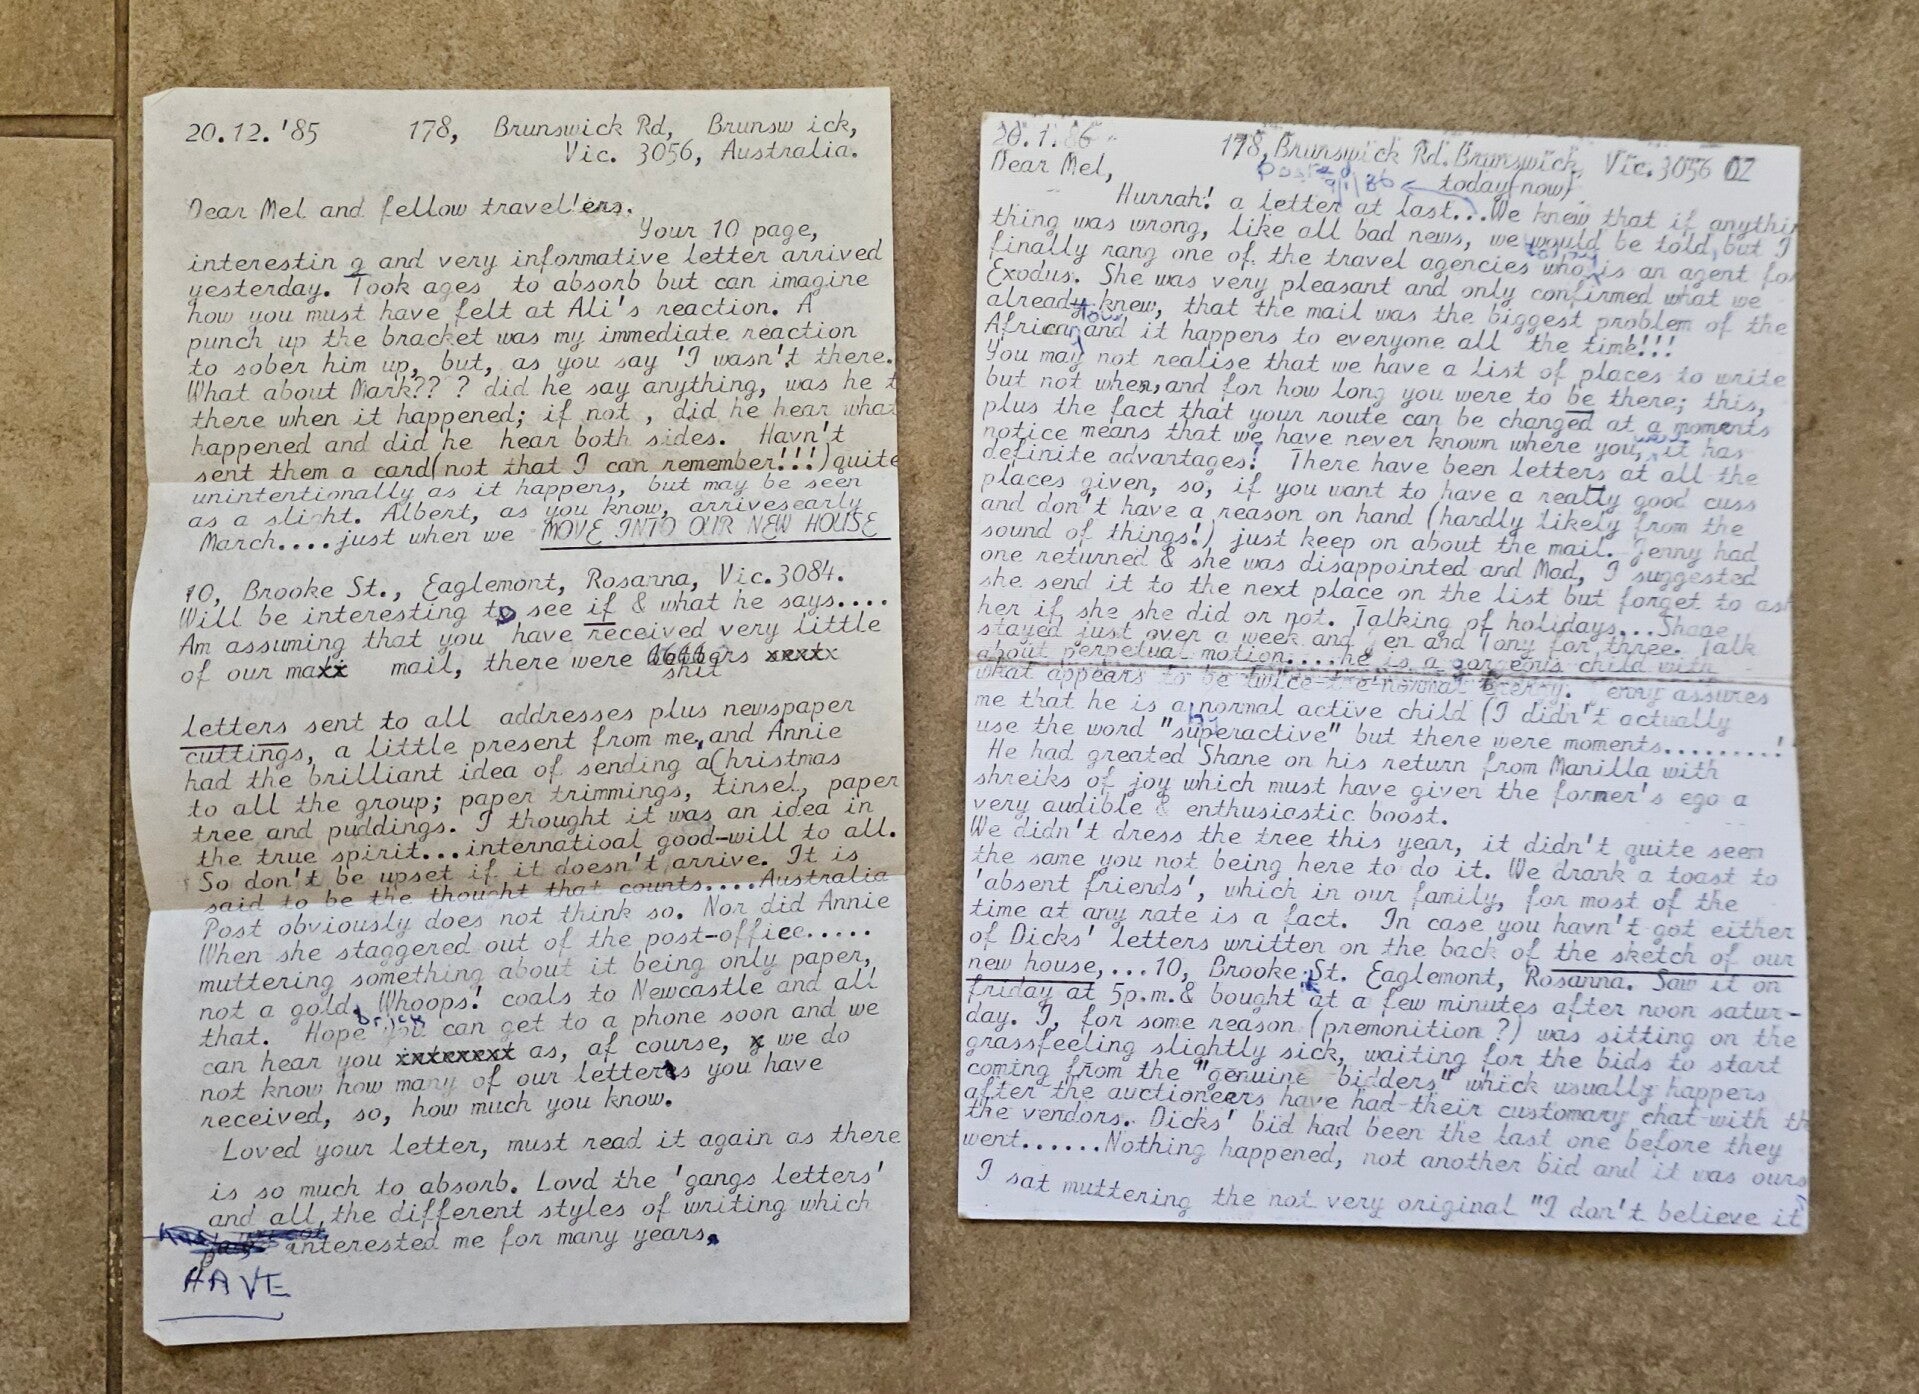 20.12.'85 178, Brunswick Rd, Brunsw ick,
Vic. 3056, Australia.
Dear Mel and fellow travellers.
Your 10 page,
interestin g and very informative letter arrived
yesterday. Took ages to absorb but can imagine
how you must have felt at Ali's reaction. A
punch up the bracket was my immediate reaction
to sober him up, but, as you say 'I wasn't there.
What about Mark?? ? did he say anything, was he t
there when it happened; if not , did he hear what
happened and did he hear both sides. Havn't
sent them a card(not that I can remember!!!)quite
unintentionally as it happens, but may be seen
as a slight. Albert, as you know, arrivesearly
March....just when we MOVE INTO OUR NEW HOUSE
10, Brooke St., Eaglemont, Rosanna, Vic.3084.
Will be interesting to see if & what he says....
Am assuming that you have received very little
of our maxx mail, there were xxxxx
shit
letters sent to all addresses plus newspaper
cuttings, a little present from me,and Annie
had the brilliant idea of sending aChristmas
to all the group; paper trimmings, tinsel, paper
tree and puddings. I thought it was an idea in
the true spirit...internatioal good-will to all.
So don't be upset if it doesn't arrive. It is
said to be the thought that counts....Australia
Post obviously does not think so. Nor did Annie
When she staggered out of the post-office.....
muttering something about it being only paper,
not a gold. Whoops! coals to Newcastle and all
brick
that. Hope you can get to a phone soon and we
can hear you as, of course, x we do
not know how many of our letters you have
received, so, how much you know.
Loved your letter, must read it again as there
is so much to absorb. Lovd the 'gangs letters'
and all, the different styles of writing which
interested me for many years.
HAVE
20.1.86 178,Brunswick Rd.Brunswick, Vic.3056 OZ
Dear Mel, posted 9/1/86 today(now)
Hurrah! a letter at last...We knew that if anythin
thing was wrong, like all bad news, we would be told, but I
finally rang one of the travel agencies who is an agent for
Exodus. She was very pleasant and only confirmed what we
already knew, that the mail was the biggest problem of the
African and it happens to everyone all the time!!!
You may not realise that we have a list of places to write
but not when,and for how long you were to be there; this,
plus the fact that your route can be changed at a moments
notice means that we have never known where you, it has
definite advantages! There have been letters at all the
places given, so, if you want to have a really good cuss
and don't have a reason on hand (hardly likely from the
sound of things!) just keep on about the mail. Jenny had
one returned & she was disappointed and Mad, I suggested
she send it to the next place on the list but forget to ask
her if, she she did or not. Talking of holidays...Shane
stayed just over a week and Jen and Tony for three. Talk
about perpetual motion....he is a gorgeous child with
what appears to be twice-the-normal energy. Jenny assures
me that he is a normal active child (I didn't actually
use the word "superactive" but there were moments.........!
He had greated Shane on his return from Manilla with
shreiks of joy which must have given the former's ego a
very audible & enthusiastic boost.
We didn't dress the tree this year, it didn't quite seem
the same you not being here to do it. We drank a toast to
'absent friends', which in our family, for most of the
time at any rate is a fact. In case you havn't got either
of Dicks' letters written on the back of the sketch of our
new house,...10, Brooke St. Eaglemont, Rosanna. Saw it on
friday at 5p.m.& bought it at a few minutes after noon satur-
day. I, for some reason (premonition ?) was sitting on the
grassfeeling slightly sick, waiting for the bids to start
coming from the "genuine bidders" which usually happens
after the auctioneers have had-their customary chat-with th
the vendors. Dicks' bid had been the last one before they
went.......Nothing happened, not another bid and it was ours
I sat muttering the not very original "I don't believe it